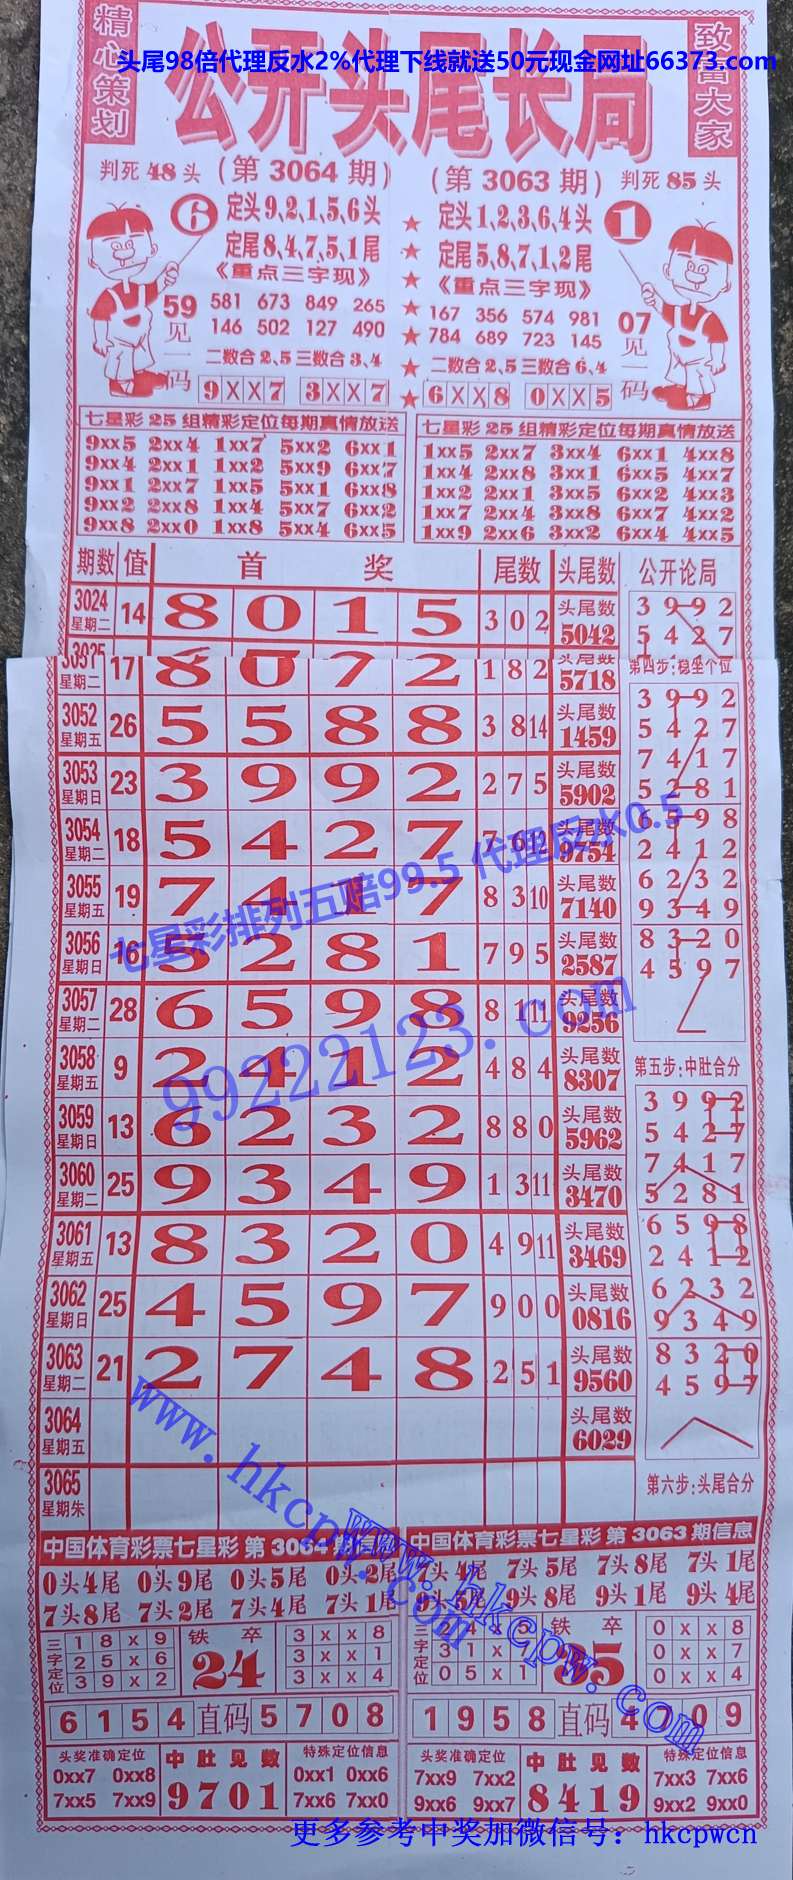 头尾98倍代理反水2%代理下线就送50元现金网址66373.com
精心策划
公开头尾长局
致富大家
判死48头
(第3064期)
(第3063期)
判死85头
6
定头9、2、1、5、6头
定头1、2、3、6、4头
1
定尾8、4、7、5、1尾
定尾5、8、7、1、2尾
《重点三字现》
《重点三字现》
59见一码
581 673 849 265
167 356 574 981
07见一码
146 502 127 490
784 689 723 145
二数合2、5三数合3、4
二数合2、5三数合6、4
9XX7 3XX7
6XX8 0XX5
七星彩25组精彩定位每期真情放送
七星彩25组精彩定位每期真情放送
9xx5 2xx4 1xx7 5xx2 6xx1
1xx5 2xx7 3xx4 6xx1 4xx8
9xx4 2xx1 1xx2 5xx9 6xx7
1xx4 2xx8 3xx1 6xx5 4xx7
9xx1 2xx7 1xx5 5xx1 6xx8
1xx2 2xx1 3xx5 6xx2 4xx3
9xx2 2xx8 1xx4 5xx7 6xx2
1xx7 2xx4 3xx8 6xx7 4xx2
9xx8 2xx0 1xx8 5xx4 6xx5
1xx9 2xx6 3xx2 6xx4 4xx5
期数 值 首奖 尾数 头尾数 公开论局
3024 星期二 14 8 0 1 5 3 0 2 头尾数 5042
3 9 9 2
5 4 2 7
星期二 17 8 0 7 2 1 8 2 头尾数 5718
第四步:稳坐个位
3052 星期五 26 5 5 8 8 3 8 14 头尾数 1459
3053 星期日 23 3 9 9 2 2 7 5 头尾数 5902
3054 星期二 18 5 4 2 7 7 6 头尾数 9754
3055 星期五 19 7 4 1 7 8 3 10 头尾数 7140
3056 星期日 16 5 2 8 1 7 9 5 头尾数 2587
3057 星期二 28 6 5 9 8 8 1 11 头尾数 9256
3058 星期五 9 2 4 1 2 4 8 4 头尾数 8307
3059 星期日 13 6 2 3 2 8 8 0 头尾数 5962
3060 星期二 25 9 3 4 9 1 3 11 头尾数 3470
3061 星期五 13 8 3 2 0 4 9 11 头尾数 3469
3062 星期日 25 4 5 9 7 9 0 0 头尾数 0816
3063 星期二 21 2 7 4 8 2 5 1 头尾数 9560
3064 星期五 头尾数 6029
3065 星期朱
3 9 9 2
5 4 2 7
7 4 1 7
5 2 8 1
6 5 9 8
2 4 1 2
6 2 3 2
9 3 4 9
8 3 2 0
4 5 9 7
第五步:中肚合分
3 9 9 2
5 4 2 7
7 4 1 7
5 2 8 1
6 5 9 8
2 4 1 2
6 2 3 2
9 3 4 9
8 3 2 0
4 5 9 7
第六步:头尾合分
七星彩排列五赔99.5 代理反水0.5
99222123.com
www.hkcpw.com
www.hkcpw.com
中国体育彩票七星彩 第3064期
中国体育彩票七星彩 第3063期信息
0头4尾 0头9尾 0头5尾 0头2尾
7头4尾 7头5尾 7头8尾 7头1尾
7头8尾 7头2尾 7头4尾 7头1尾
9头8尾 9头1尾 9头4尾
三字定位
1 8 x 9
2 5 x 6
3 9 x 2
铁卒
24
3 x x 8
3 x x 1
3 x x 4
三字定位
3 1 x
0 5 x 1
铁卒
35
0 x x 8
0 x x 7
0 x x 4
6 1 5 4 直码 5 7 0 8
1 9 5 8 直码 4 7 0 9
头奖准确定位
0xx7 0xx8
7xx5 7xx9
中肚见数
9701
特殊定位信息
0xx1 0xx6
7xx6 7xx0
头奖准确定位
7xx9 7xx2
9xx6 9xx7
中肚见数
8419
特殊定位信息
7xx3 7xx6
9xx2 9xx0
更多参考中奖加微信号：hkcpwcn